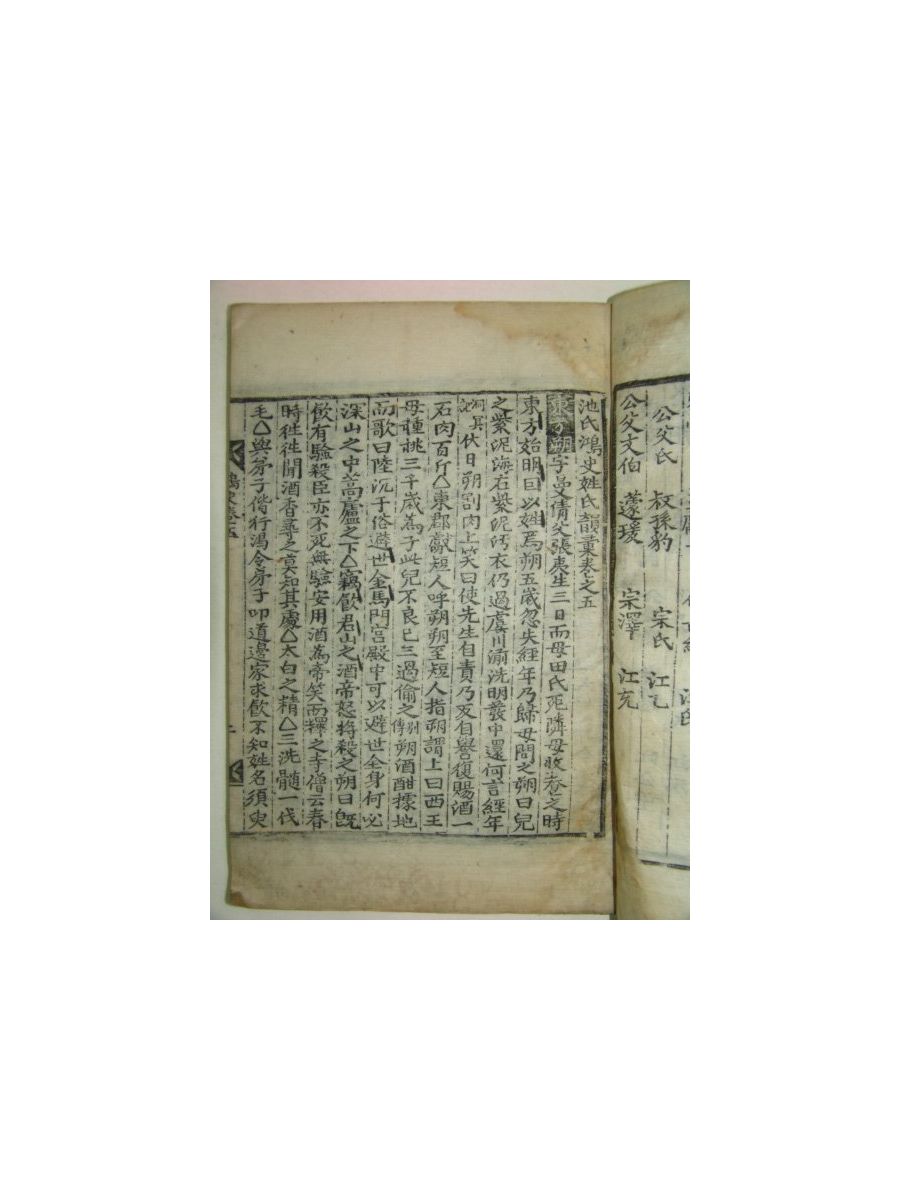 公父氏 叔孫豹 宋氏 江乙
公父文伯 蘧瑗 宋澤 江充
池氏鴻史姓氏韻彙卷之五
東方朔字曼倩父張夷生三日而母田氏死隣母收養之時
東方始明因以姓焉朔五歲忽失經年乃歸母問之朔曰兒
之紫泥海右紫泥汚衣仍過虞川湔洗明發中還何言經年
洞冥記伏日朔割肉上笑曰使先生自責乃反自譽復賜酒一
石肉百斤△東郡獻短人呼朔朔至短人指朔謂上曰西王
母種桃三千歲為子此兒不良已三過偷之別傳朔酒酣據地
而歌曰陸沉于俗避世金馬門宮殿中可以避世全身何必
深山之中蒿廬之下△竊飮君山之酒帝怒將殺之朔曰旣
飮有驗殺臣亦不死無驗安用酒為帝笑而釋之寺僧云春
時徃徃聞酒香尋之莫知其處△太白之精△三洗髓一代
毛△與弟子偕行渴令弟子叩道邊家求飮不知姓名須臾
鴻史卷五